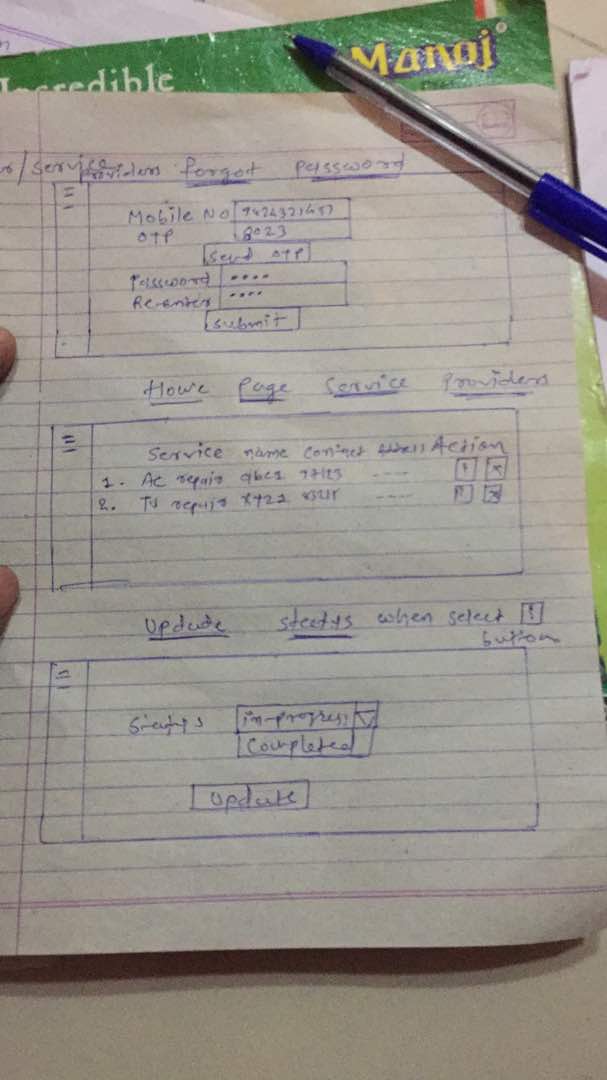 Manoj
Incredible
Service Providers Forgot Password
Mobile No
OTP 8023
Send OTP
Password ....
Re-enter ....
Submit
Home Page Service Providers
Service name contact Action
1. AC repair
2. TV repair
Update status when select !
button
Status in-progress
Completed
Update